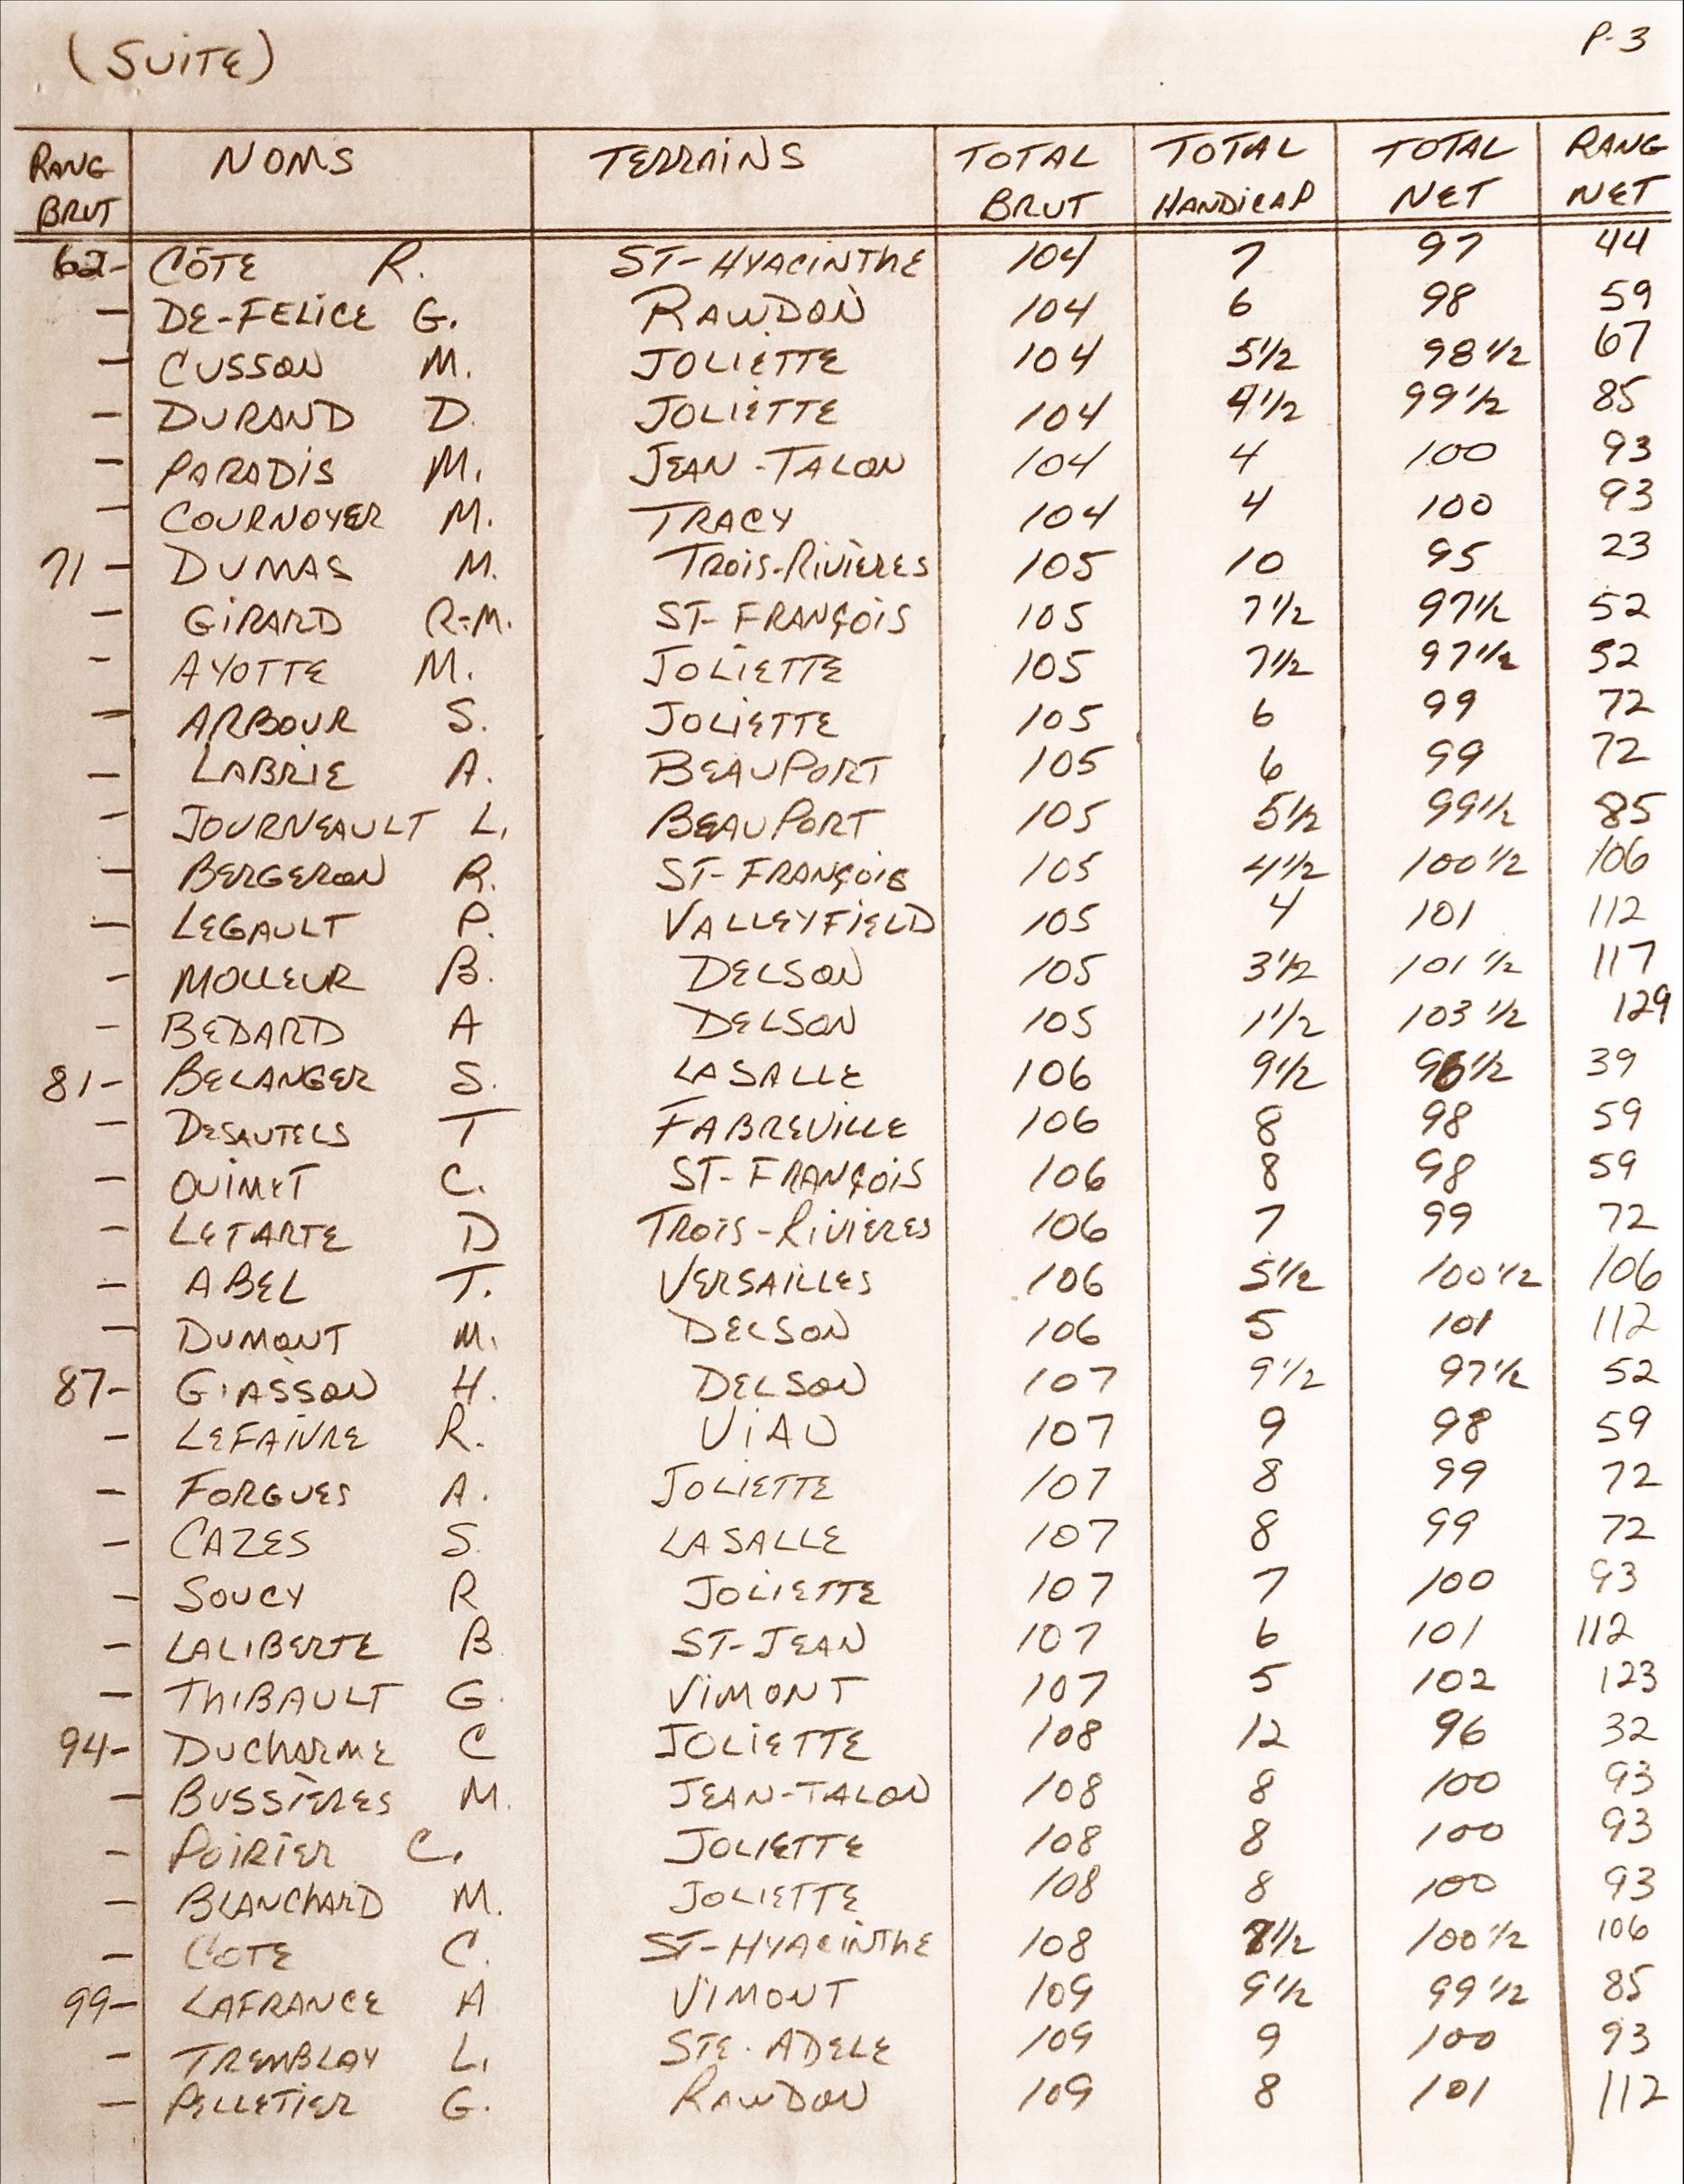 (SUITE) P-3
RANG BRUT NOMS TERRAINS TOTAL BRUT TOTAL HANDICAP TOTAL NET RANG NET
62- CÔTE R. ST-HYACINTHE 104 7 97 44
- DE-FELICE G. RAWDON 104 6 98 59
- CUSSON M. JOLIETTE 104 5½ 98½ 67
- DURAND D. JOLIETTE 104 4½ 99½ 85
- PARADIS M. JEAN-TALON 104 4 100 93
- COURNOYER M. TRACY 104 4 100 93
71- DUMAS M. TROIS-RIVIÈRES 105 10 95 23
- GIRARD R-M. ST-FRANÇOIS 105 7½ 97½ 52
- AYOTTE M. JOLIETTE 105 7½ 97½ 52
- ARBOUR S. JOLIETTE 105 6 99 72
- LABRIE A. BEAUPORT 105 6 99 72
- JOURNEAULT L. BEAUPORT 105 5½ 99½ 85
- BERGERON R. ST-FRANÇOIS 105 4½ 100½ 106
- LEGAULT P. VALLEYFIELD 105 4 101 112
- MOLLEUR B. DELSON 105 3½ 101½ 117
- BEDARD A DELSON 105 1½ 103½ 129
81- BELANGER S. LASALLE 106 9½ 96½ 39
- DESAUTELS T FABREVILLE 106 8 98 59
- OUIMET C. ST-FRANÇOIS 106 8 98 59
- LETARTE D TROIS-RIVIÈRES 106 7 99 72
- ABEL T. VERSAILLES 106 5½ 100½ 106
- DUMONT M. DELSON 106 5 101 112
87- GIASSON H. DELSON 107 9½ 97½ 52
- LEFAIVRE R. VIAU 107 9 98 59
- FORGUES A. JOLIETTE 107 8 99 72
- CAZES S. LASALLE 107 8 99 72
- SOUCY R JOLIETTE 107 7 100 93
- LALIBERTE B ST-JEAN 107 6 101 112
- THIBAULT G. VIMONT 107 5 102 123
94- DUCHARME C JOLIETTE 108 12 96 32
- BUSSIÈRES M. JEAN-TALON 108 8 100 93
- POIRIER C. JOLIETTE 108 8 100 93
- BLANCHARD M. JOLIETTE 108 8 100 93
- COTE C. ST-HYACINTHE 108 7½ 100½ 106
99- LAFRANCE A VIMONT 109 9½ 99½ 85
- TREMBLAY L. STE-ADELE 109 9 100 93
- PELLETIER G. RAWDON 109 8 101 112